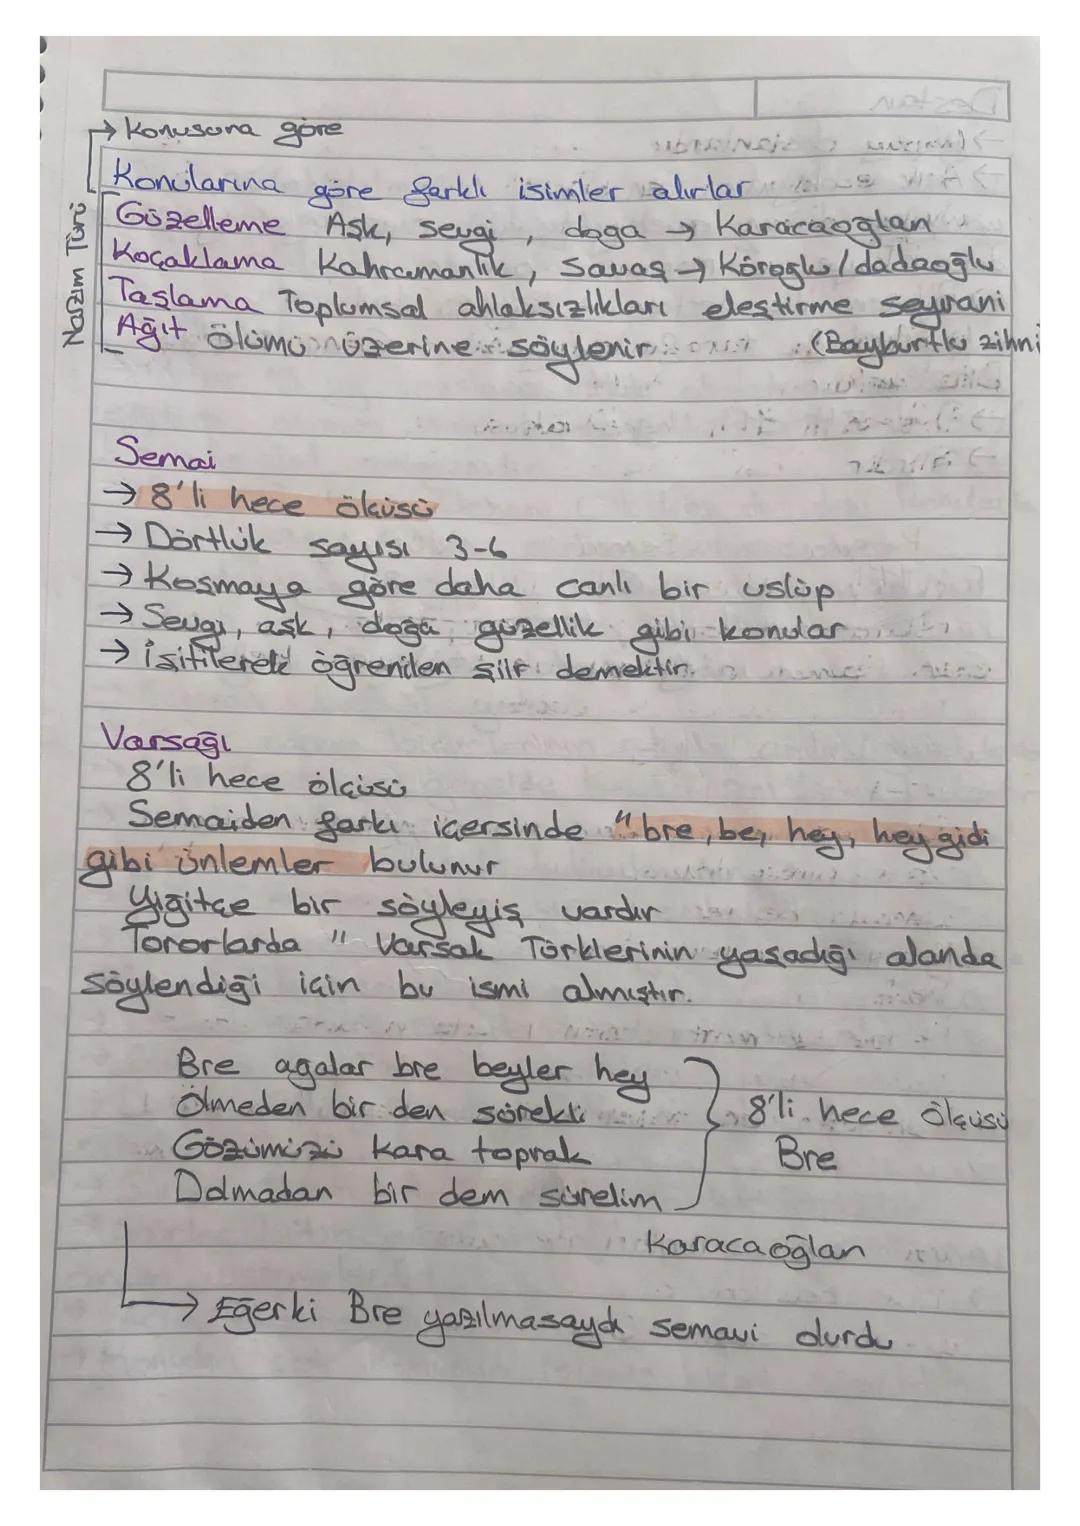 → Konusuna göre
Nazım Türü
Konularına göre farklı isimler alırlar
Güzelleme Aşk, sevgi, doga → Karacaoğlan
Koçaklama Kahramanlık, Savaş → Köroglu / dadaoğlu
Taşlama Toplumsal ahlaksızlıkları eleştirme seyrani
Ağıt ölümü üzerine söylenir (Bayburtlu zihni
Semai
→ 8'li hece ölçüsü
→ Dörtlük sayısı 3-6
→ Koşmaya göre daha canlı bir uslüp
→ Sevgi, aşk, doğa, güzellik gibi konular
→ işitilerek öğrenilen şiir demektir.
Varsağı
8'li hece ölçüsü
Semaiden farkı içersinde "bre, be, hey, hey gidi
gibi ünlemler bulunur
Yiğitçe bir söyleyiş vardır
Tororlarda " Varsak Törklerinin yaşadığı alanda
söylendiği için bu ismi almıştır.
Bre agalar bre beyler hey
Ölmeden bir den sürekli
8'li hece Ölçüsü
Gözümüzü kara toprak
Bre
Dolmadan bir dem sürelim
Karacaoğlan
→ Eğerki Bre yazılmasaydı semavi olurdu